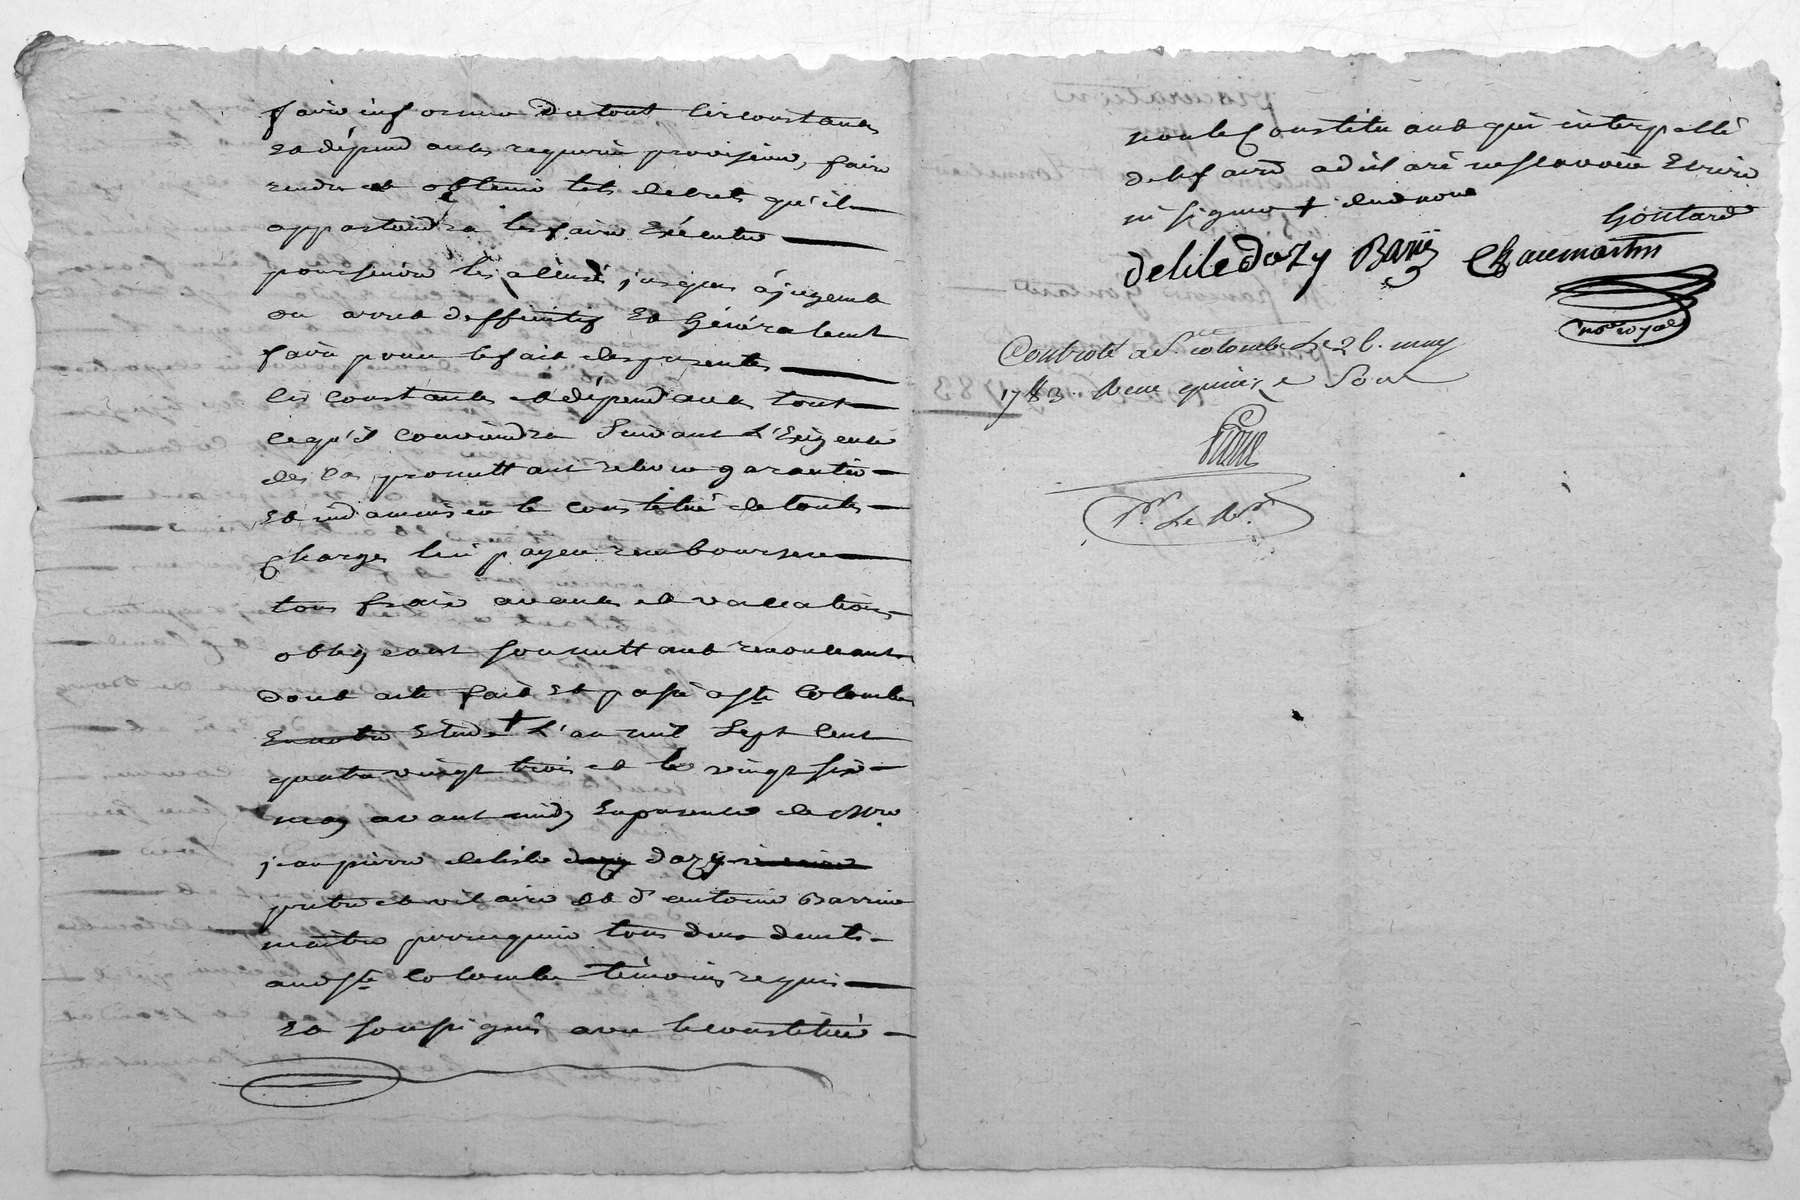 faire informer du tout circonstances
et dépendantes requerir provisions, faire
rendre et obtenir tels decrets qu'il
appartiendra les faire Executer
poursuivre les accusés jusques à jugement
ou arret deffinitif Et Généralement
faire pour le fait des presentes
circonstances et dépendances tout
ce qu'il conviendra Suivant L'Exigence
des cas promettant relever garantir
Et indamniser le constitué de toutes
charges lui payer rembourser
tous fraix avances et vaccations
obligeant soumettant renonceant
dont acte fait Et passé a Ste Colombe
En notre Etude + L'an mil Sept Cent
quatre vingt trois et le vingt six
may avant midy En presence de Mre
jean pierre delisle dazy
pretre et vicaire et d' antoine Barrin
maitre perruquier tous deux demts
audt Ste Colombe témoins requis
Et soussignés avec le constitué
non le Constituant qui interpellé
de le faire a déclaré ne sçavoir Ecrire
ni signer +
Goutard
deliledazy Barin Chavemartin
nore royal
Controlé a Ste colombe Le 26. may
1783. Reçu quinze Sous